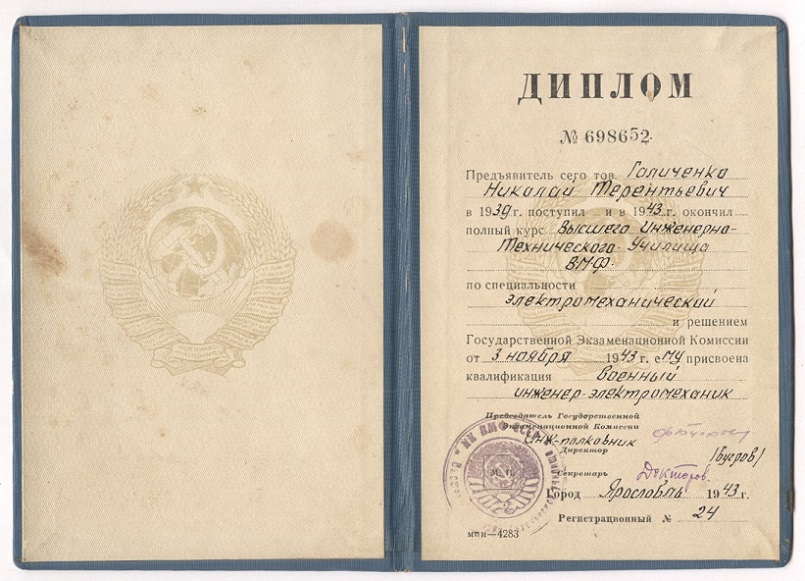 ДИПЛОМ
№ 698652
Предъявитель сего тов. Галиченко
Николай Терентьевич
в 1939 г. поступил и в 1943 г. окончил
полный курс Высшего Инженерно-
Технического Училища
ВМФ
по специальности
электромеханической
и решением
Государственной Экзаменационной Комиссии
от 3 ноября 1943 г. ему присвоена
квалификация военный
инженер-электромеханик
Председатель Государственной
Экзаменационной Комиссии
инж-полковник
Директор (Бугров)
Секретарь Докторов
М. П.
НК ВМФ СССР
Город Ярославль 1943 г.
Регистрационный № 24
мпи—4283